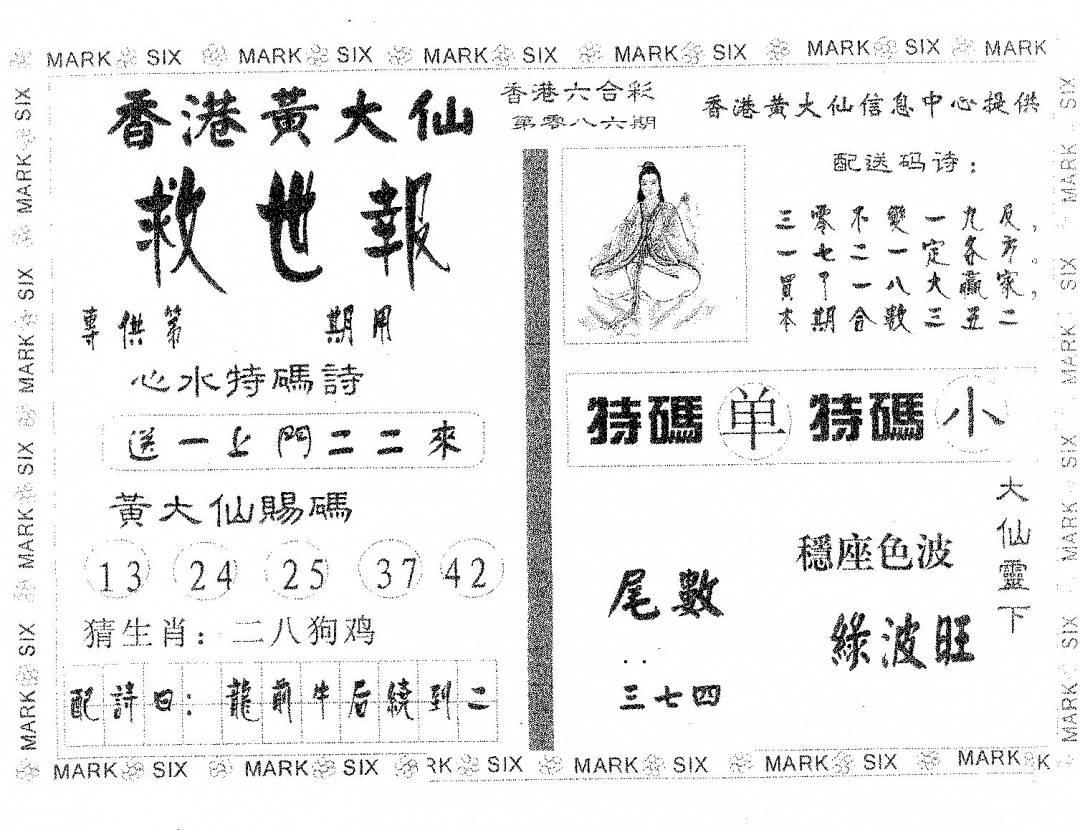 MARK SIX MARK SIX MARK SIX MARK SIX MARK SIX MARK
香港黃大仙
救世報
專供第 期用
心水特碼詩
送一上門二二來
黃大仙賜碼
13 24 25 37 42
猜生肖：二八狗鸡
配詩曰：龍前牛后繞到二
香港六合彩
第零八六期
香港黃大仙信息中心提供
配送码诗：
三零不變一九反，
一七二一定各方。
買了一八大贏家，
本期合數三五二
特碼 单 特碼 小
大仙靈下
穩座色波
綠波旺
尾數：
三七四
MARK SIX MARK SIX MARK SIX MARK SIX
MARK SIX MARK SIX MARK SIX MARK SIX
MARK SIX MARK SIX RK SIX MARK SIX MARK SIX MARK K